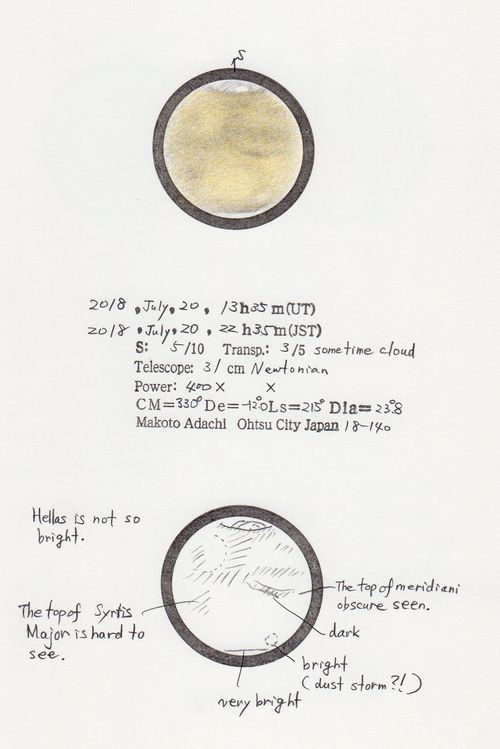 S
2018, July, 20, 13h35m(UT)
2018, July, 20, 22h35m(JST)
S: 5/10 Transp.: 3/5 sometime cloud
Telescope: 31 cm Newtonian
Power: 400× ×
CM=330° De=-12.0 Ls=215° Dia=23.8
Makoto Adachi Ohtsu City Japan 18-140
Hellas is not so
bright.
The top of meridiani
obscure seen.
The top of Syrtis
Major is hard to
see.
dark
bright
(dust storm?!)
very bright